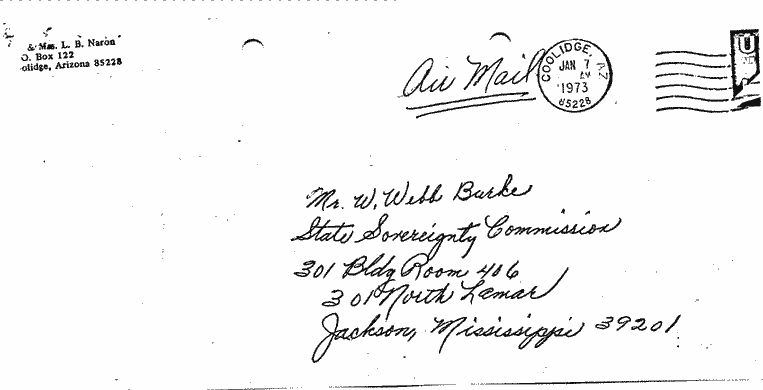 & Mrs. L. B. Naron
O. Box 122
olidge, Arizona 85228
Air Mail
COOLIDGE, AZ
JAN 7
AM
1973
85228
U
Mr. W. Webb Burke
State Sovereignty Commission
301 Bldg Room 406
301 North Lamar
Jackson, Mississippi 39201